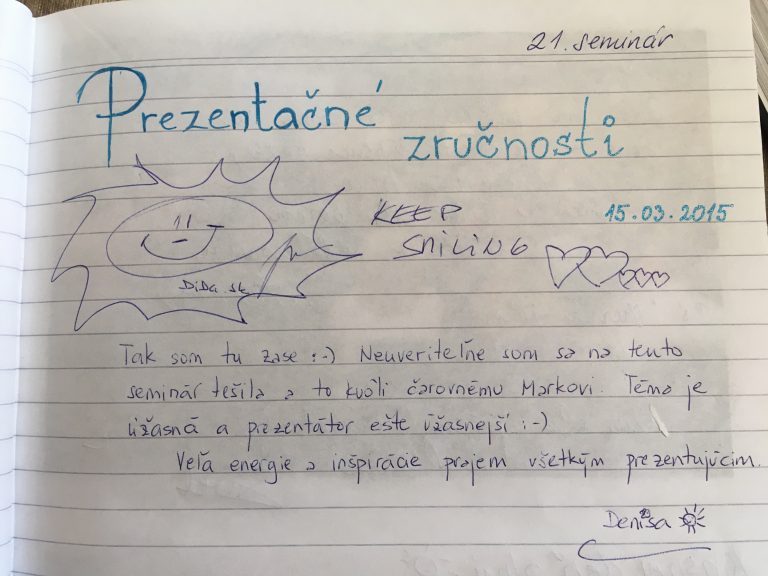 21. seminár
Prezentačné
zručnosti
KEEP
SMILING
15.03.2015
DiDa sk
Tak som tu zase :-) Neuveriteľne som sa na tento
seminár tešila a to kvôli čarovnému Markovi. Téma je
úžasná a prezentátor ešte úžasnejší :-)
Veľa energie a inšpirácie prajem všetkým prezentujúcim.
Denisa